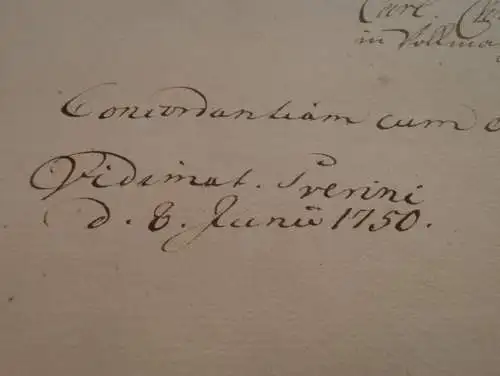 Carl.
in Vollma
Concordantiam cum
Vidimat. Sverini
d. 8. Junii 1750.